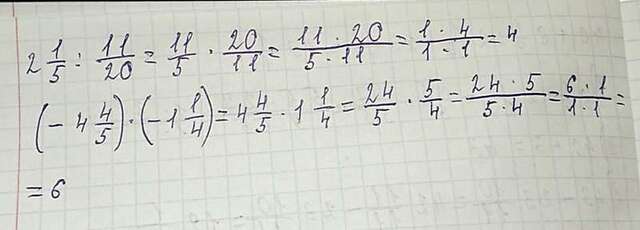 2 1/5 : 11/20 = 11/5 · 20/11 = (11 · 20)/(5 · 11) = (1 · 4)/(1 · 1) = 4
(- 4 4/5) · (- 1 1/4) = 4 4/5 · 1 1/4 = 24/5 · 5/4 = (24 · 5)/(5 · 4) = (6 · 1)/(1 · 1) =
= 6